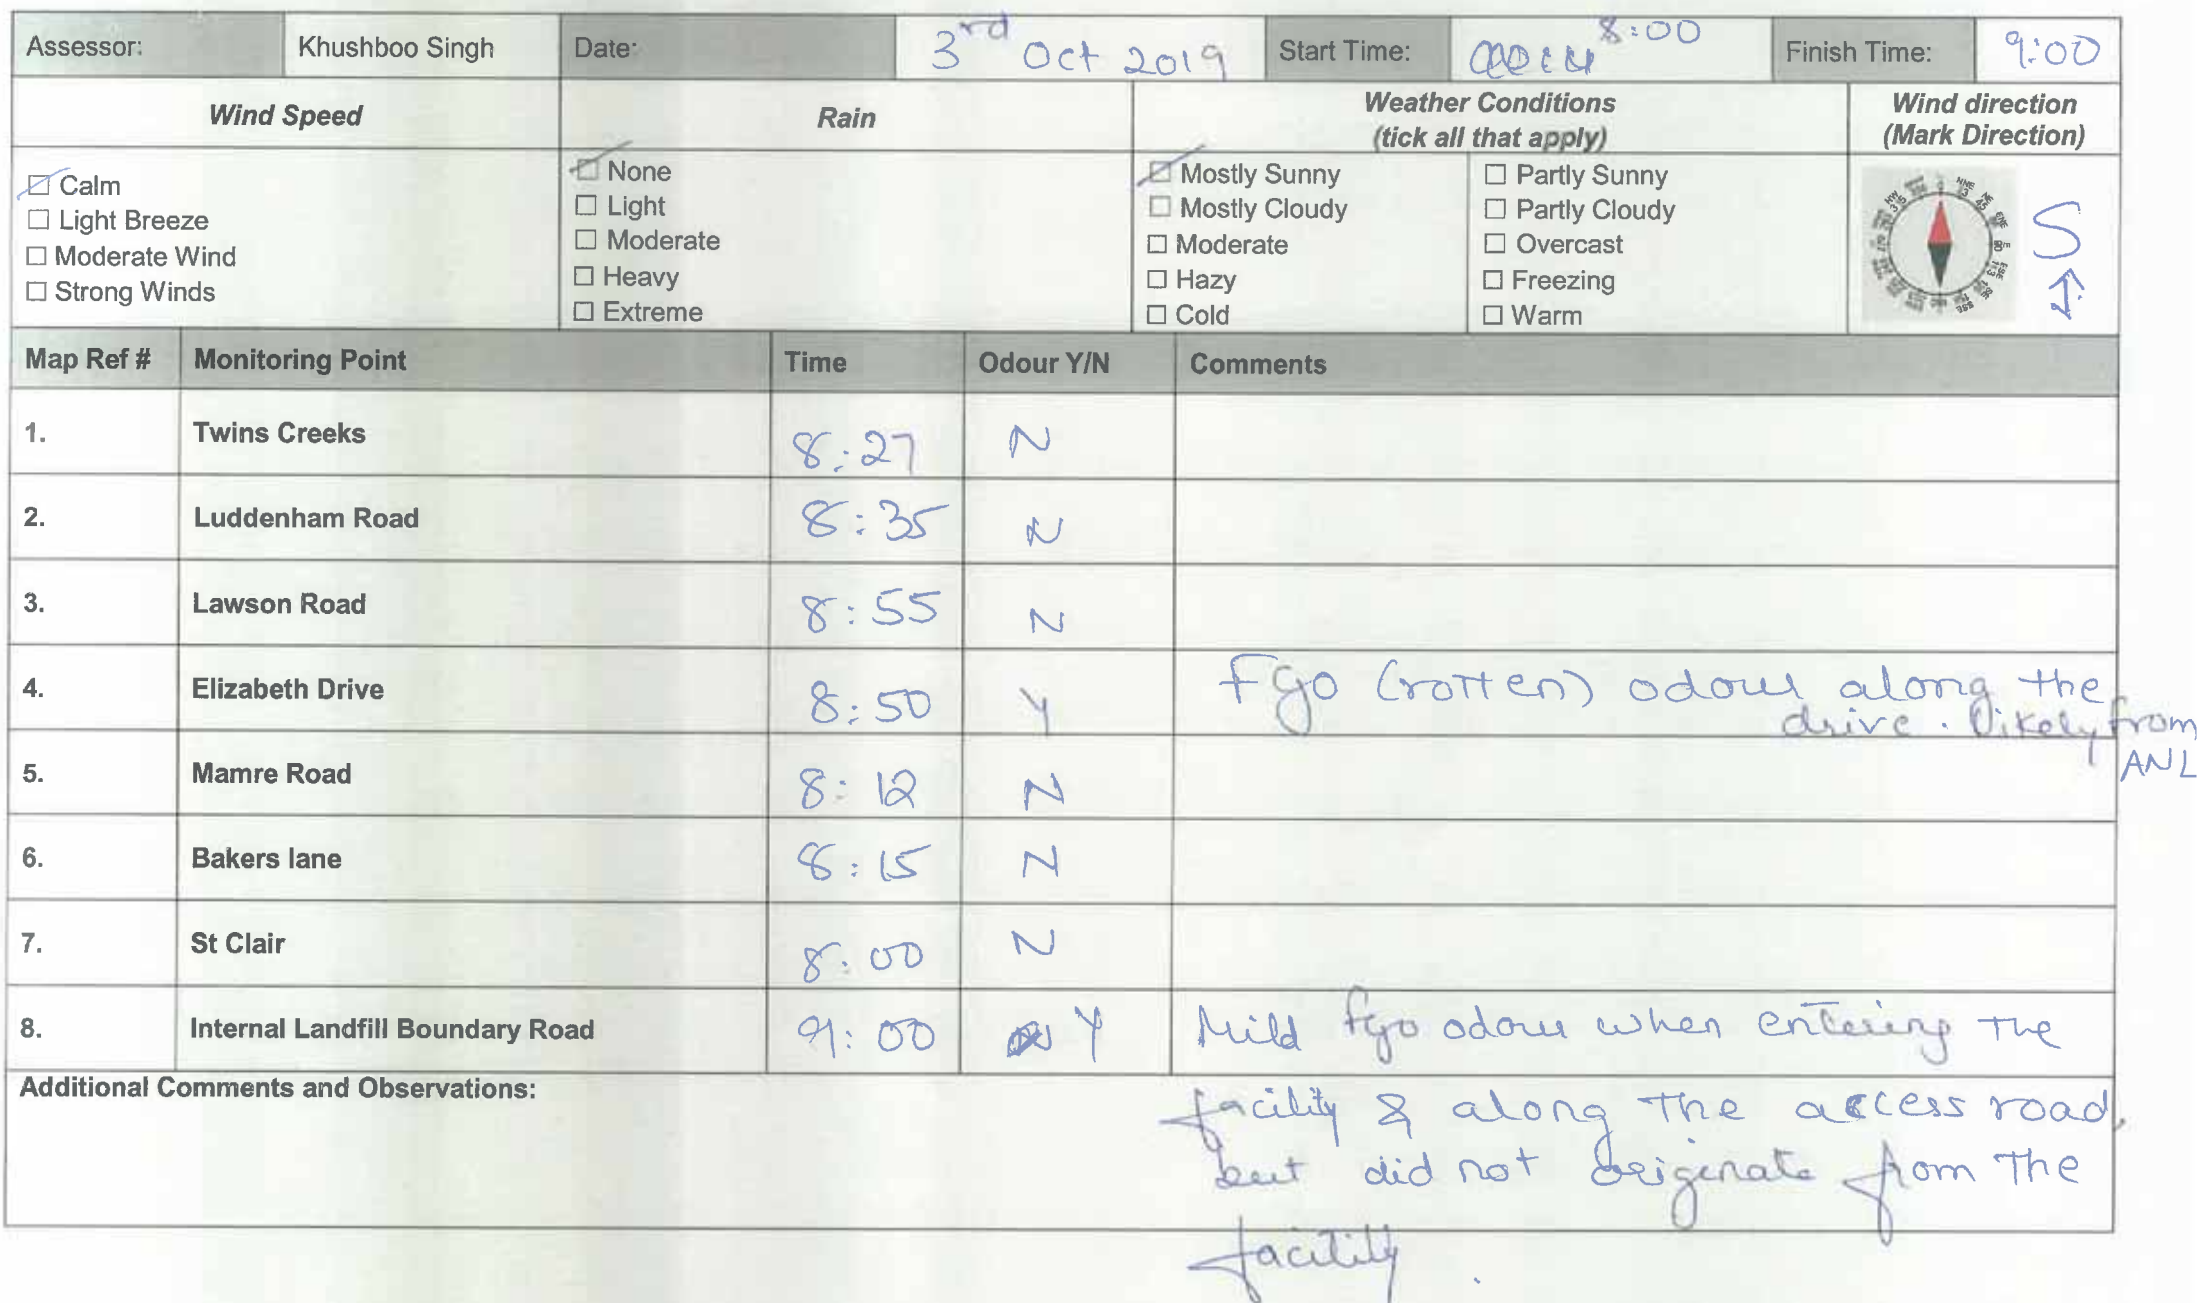 Assessor: Khushboo Singh Date: 3rd Oct 2019 Start Time: 8:00 Finish Time: 9:00
Wind Speed Rain Weather Conditions (tick all that apply) Wind direction (Mark Direction)
☑ Calm
☐ Light Breeze
☐ Moderate Wind
☐ Strong Winds
☑ None
☐ Light
☐ Moderate
☐ Heavy
☐ Extreme
☑ Mostly Sunny
☐ Mostly Cloudy
☐ Moderate
☐ Hazy
☐ Cold
☐ Partly Sunny
☐ Partly Cloudy
☐ Overcast
☐ Freezing
☐ Warm
S
Map Ref # Monitoring Point Time Odour Y/N Comments
1. Twins Creeks 8:27 N
2. Luddenham Road 8:35 N
3. Lawson Road 8:55 N
4. Elizabeth Drive 8:50 Y Fgo (rotten) odour along the
drive. Likely from
ANL
5. Mamre Road 8:12 N
6. Bakers lane 8:15 N
7. St Clair 8:00 N
8. Internal Landfill Boundary Road 9:00 Y Mild fgo odour when entering the
Additional Comments and Observations: facility & along the access road,
but did not originate from the
facility.